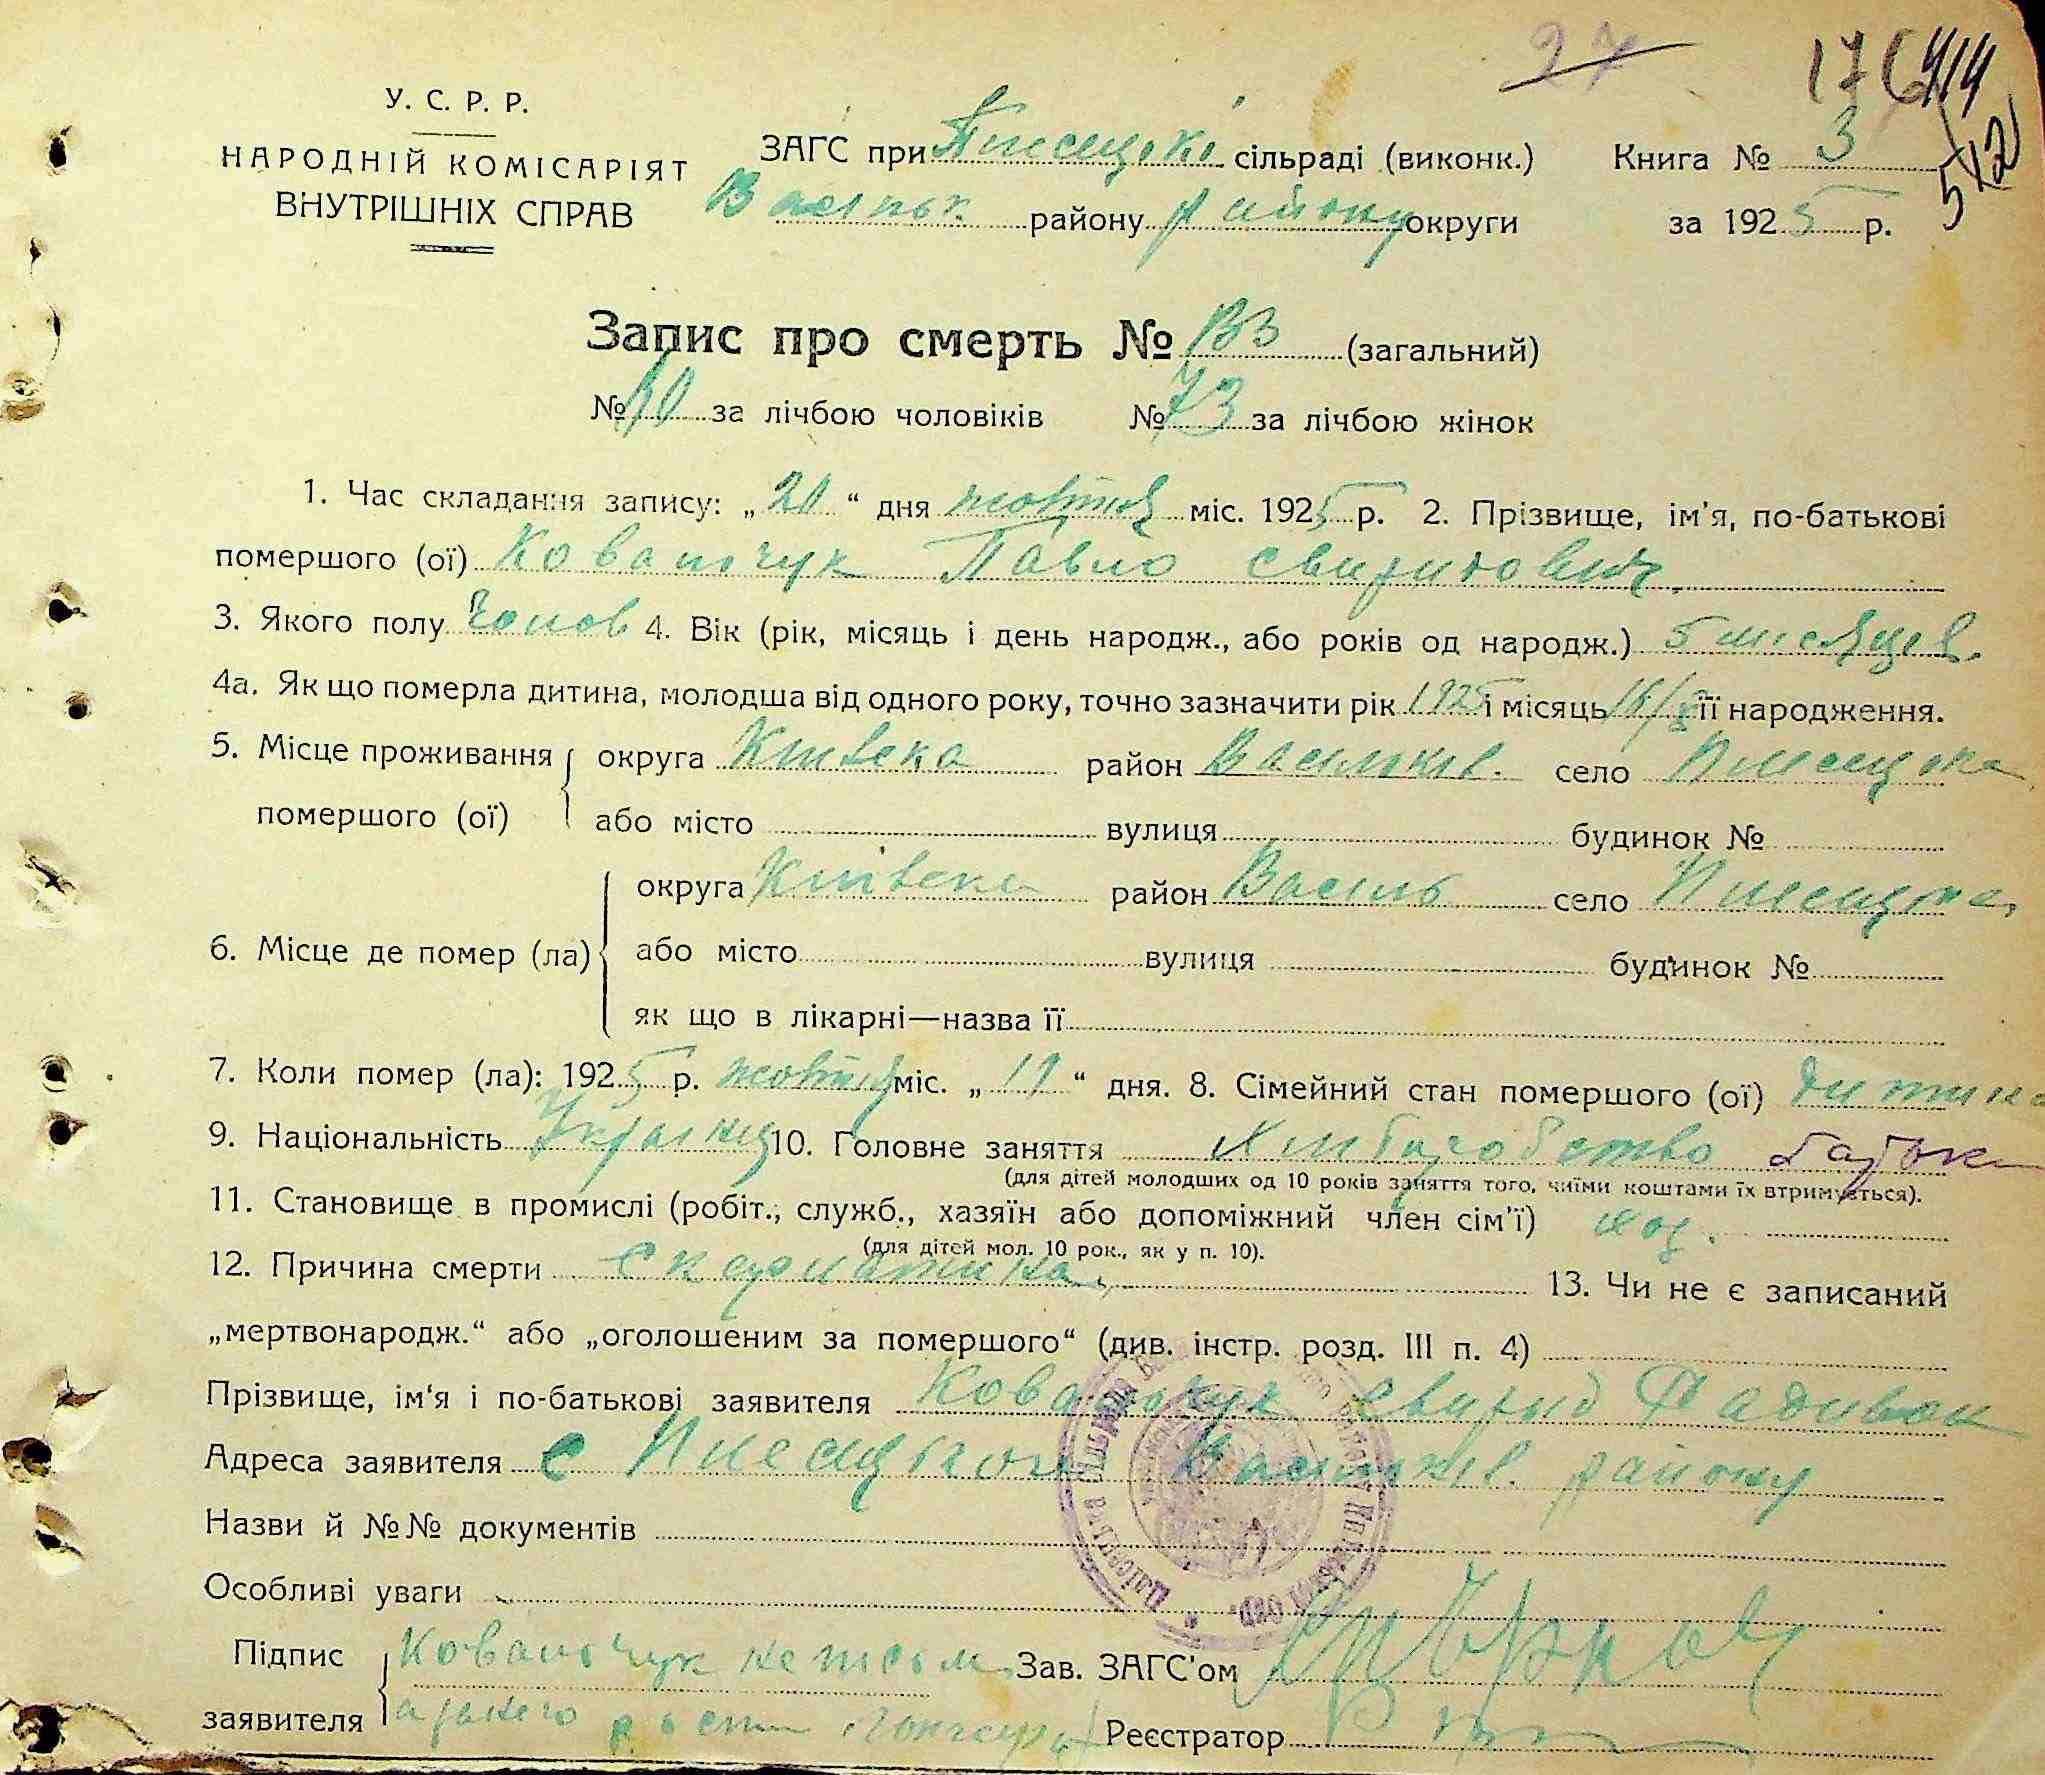 27 176 414
512
У. С. Р. Р.
НАРОДНІЙ КОМІСАРІЯТ
ВНУТРІШНІХ СПРАВ
ЗАГС при Плесецькі сільраді (виконк.) Книга № 3
Васильк. району району округи за 1925 р.
Запис про смерть № 133 (загальний)
№ за лічбою чоловіків № 73 за лічбою жінок
1. Час складання запису: „20“ дня жовтня міс. 1925 р. 2. Прізвище, ім'я, по-батькові
помершого (ої) Ковальчук Павло Свиридович
3. Якого полу Чолов 4. Вік (рік, місяць і день народж., або років од народж.) 5 місяцев.
4а. Як що померла дитина, молодша від одного року, точно зазначити рік 1925 і місяць її народження.
5. Місце проживання округа Київска район Васильків. село Плесецька
помершого (ої) або місто вулиця будинок №
округа Київска район Василь село Плесецька,
6. Місце де помер (ла) або місто вулиця будинок №
як що в лікарні—назва її
7. Коли помер (ла): 1925 р. жовтня міс. „19“ дня. 8. Сімейний стан помершого (ої) дитина
9. Національність Українец 10. Головне заняття Хліборобство батька
(для дітей молодших од 10 років заняття того, чиїми коштами їх втримується).
11. Становище в промислі (робіт., служб., хазяїн або допоміжний член сім'ї)
(для дітей мол. 10 рок., як у п. 10).
12. Причина смерти скарлатина, 13. Чи не є записаний
„мертвонародж.“ або „оголошеним за помершого“ (див. інстр. розд. III п. 4)
Прізвище, ім'я і по-батькові заявителя Ковальчук Свирид
Адреса заявителя с Плесецькой Васильків. району
Назви й №№ документів
Особливі уваги
Підпис Ковальчук Зав. ЗАГС'ом
заявителя Реєстратор